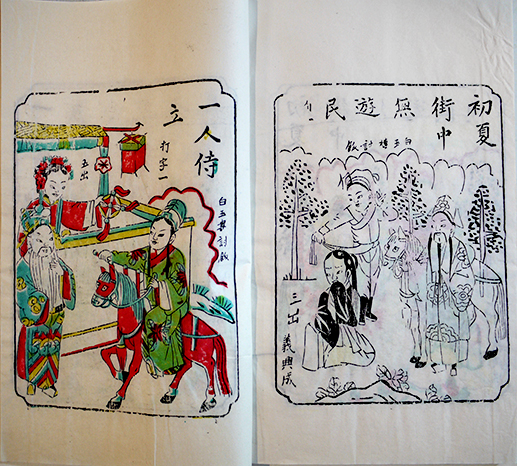 一人侍立
打字一
白玉樓討飯
五出
初夏街中無遊民
白玉樓討飯
三出
義興成